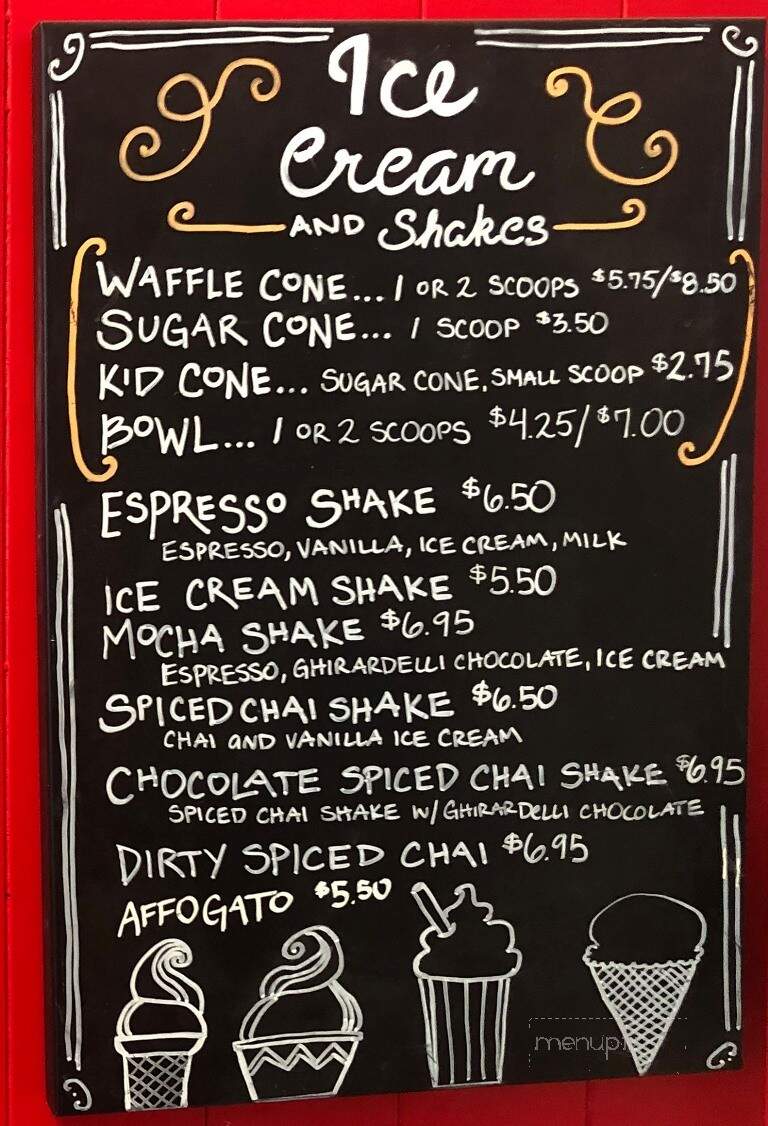 Ice
Cream
AND Shakes
WAFFLE CONE... 1 OR 2 SCOOPS $5.75/$8.50
SUGAR CONE... 1 SCOOP $3.50
KID CONE... SUGAR CONE, SMALL SCOOP $2.75
BOWL... 1 OR 2 SCOOPS $4.25/$7.00
ESPRESSO SHAKE $6.50
ESPRESSO, VANILLA, ICE CREAM, MILK
ICE CREAM SHAKE $5.50
MOCHA SHAKE $6.95
ESPRESSO, GHIRARDELLI CHOCOLATE, ICE CREAM
SPICED CHAI SHAKE $6.50
CHAI AND VANILLA ICE CREAM
CHOCOLATE SPICED CHAI SHAKE $6.95
SPICED CHAI SHAKE W/ GHIRARDELLI CHOCOLATE
DIRTY SPICED CHAI $6.95
AFFOGATO $5.50